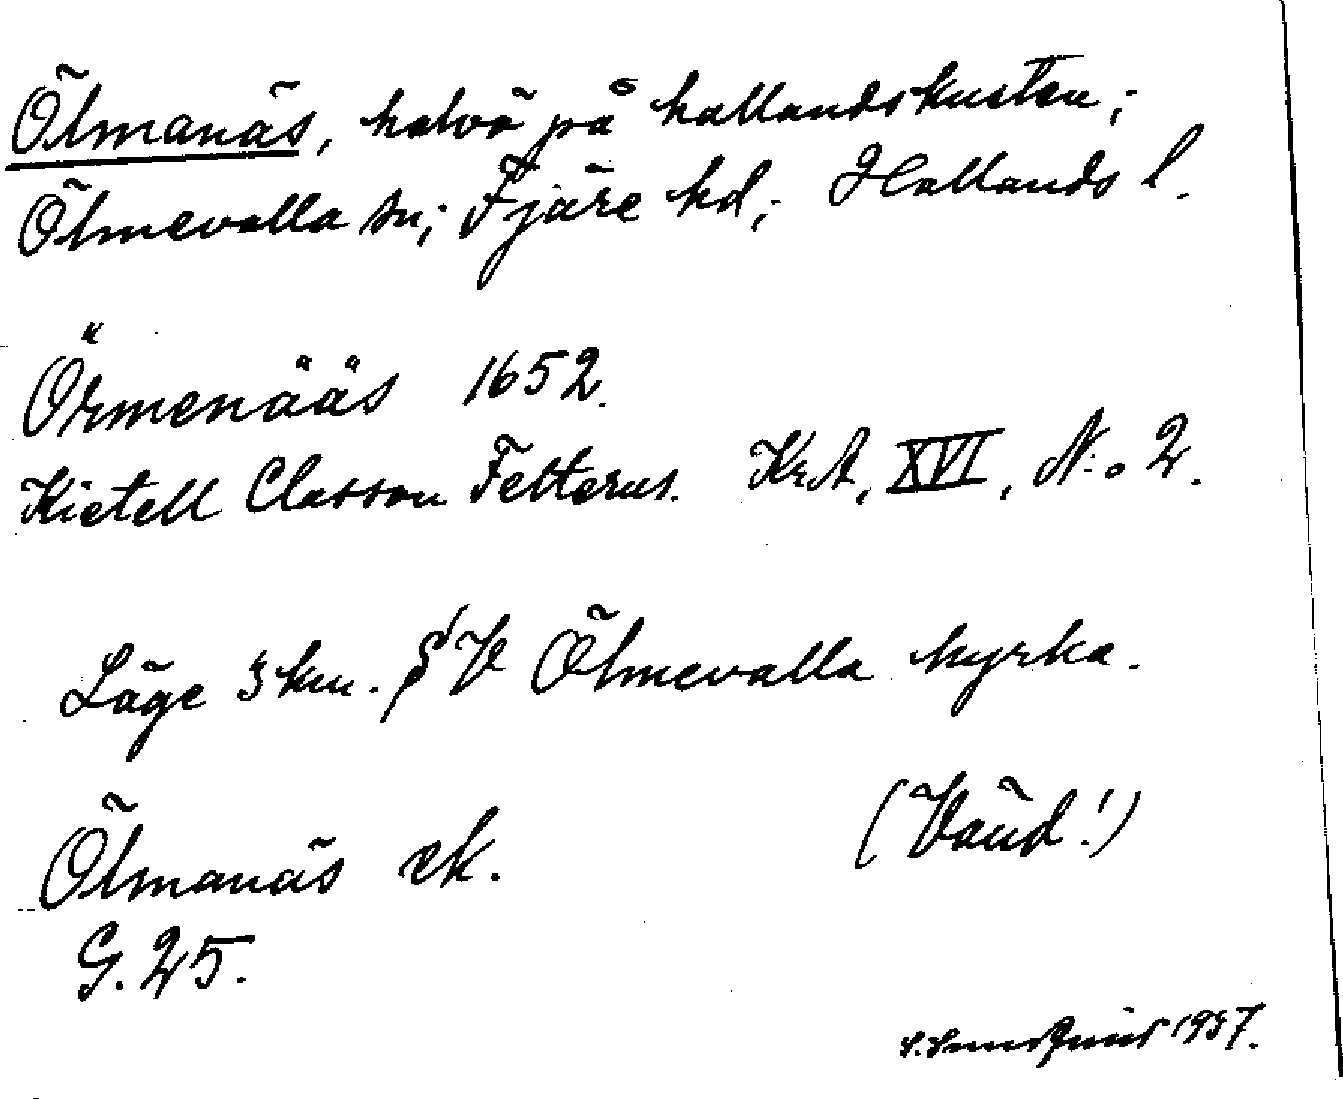 Ölmanäs, halvö på hallandskusten;
Ölmevalla sn; Fjäre hd; Hallands l.
Örmenääs 1652.
Kietell Classon Felterus. Kr.A. XVI, N:o 2.
Läge 3 km. V Ölmevalla kyrka.
(Vänd!)
Ölmanäs ek.
G. 25.
1937.